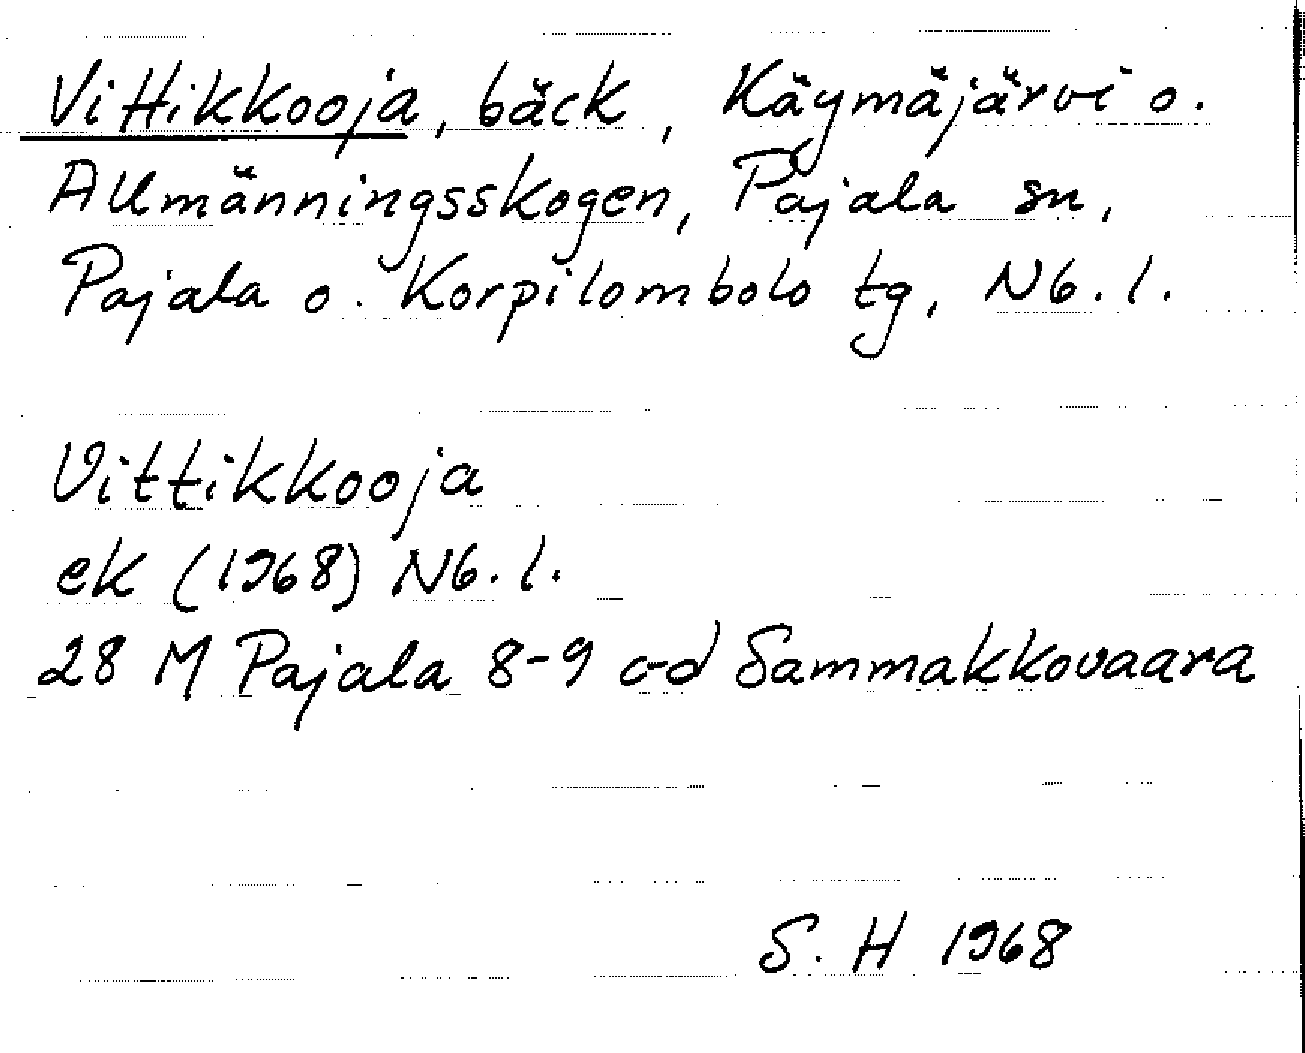 Vittikkooja, bäck, Käymäjärvi o.
Allmänningsskogen, Pajala sn,
Pajala o. Korpilombolo tg, Nb. l.
Vittikkooja
ek (1968) Nb. l.
28 M Pajala 8-9 c-d Sammakkovaara
S. H 1968